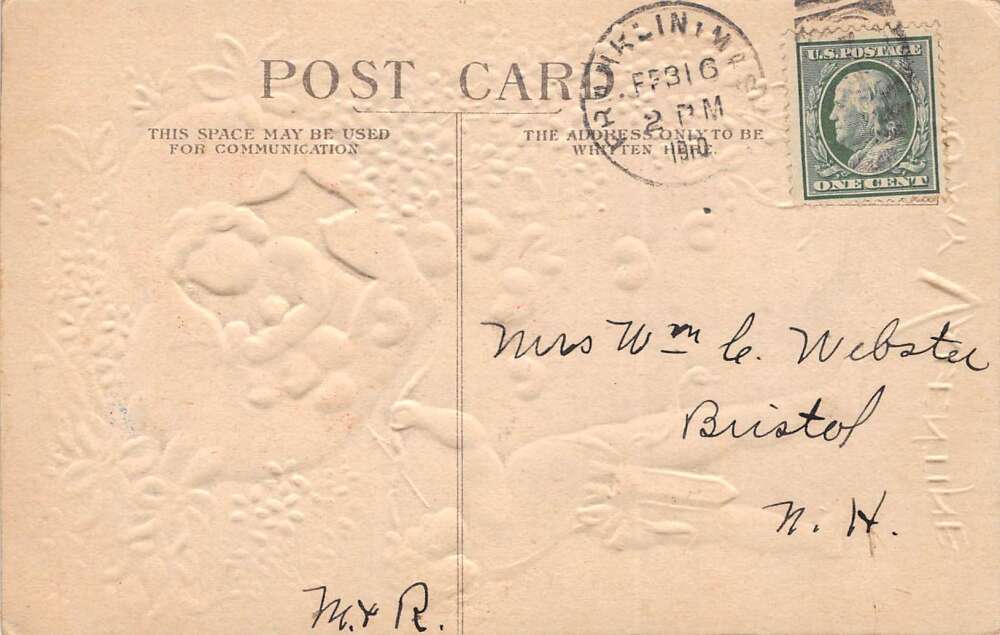 POST CARD
THIS SPACE MAY BE USED
FOR COMMUNICATION
THE ADDRESS ONLY TO BE
WRITTEN HERE.
FRANKLIN, MASS
FEB 16
2 PM
1910
U.S. POSTAGE
ONE CENT
Mrs Wm C. Webster
Bristol
N. H.
M. & R.
VALENTINE